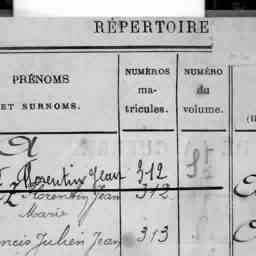 RÉPERTOIRE
PRÉNOMS
ET SURNOMS.
NUMÉROS
ma-
tricules.
NUMÉRO
du
volume.
A
Florentin Jean 312
Florentin Jean 312
Marie
ncis Julien Jean 313